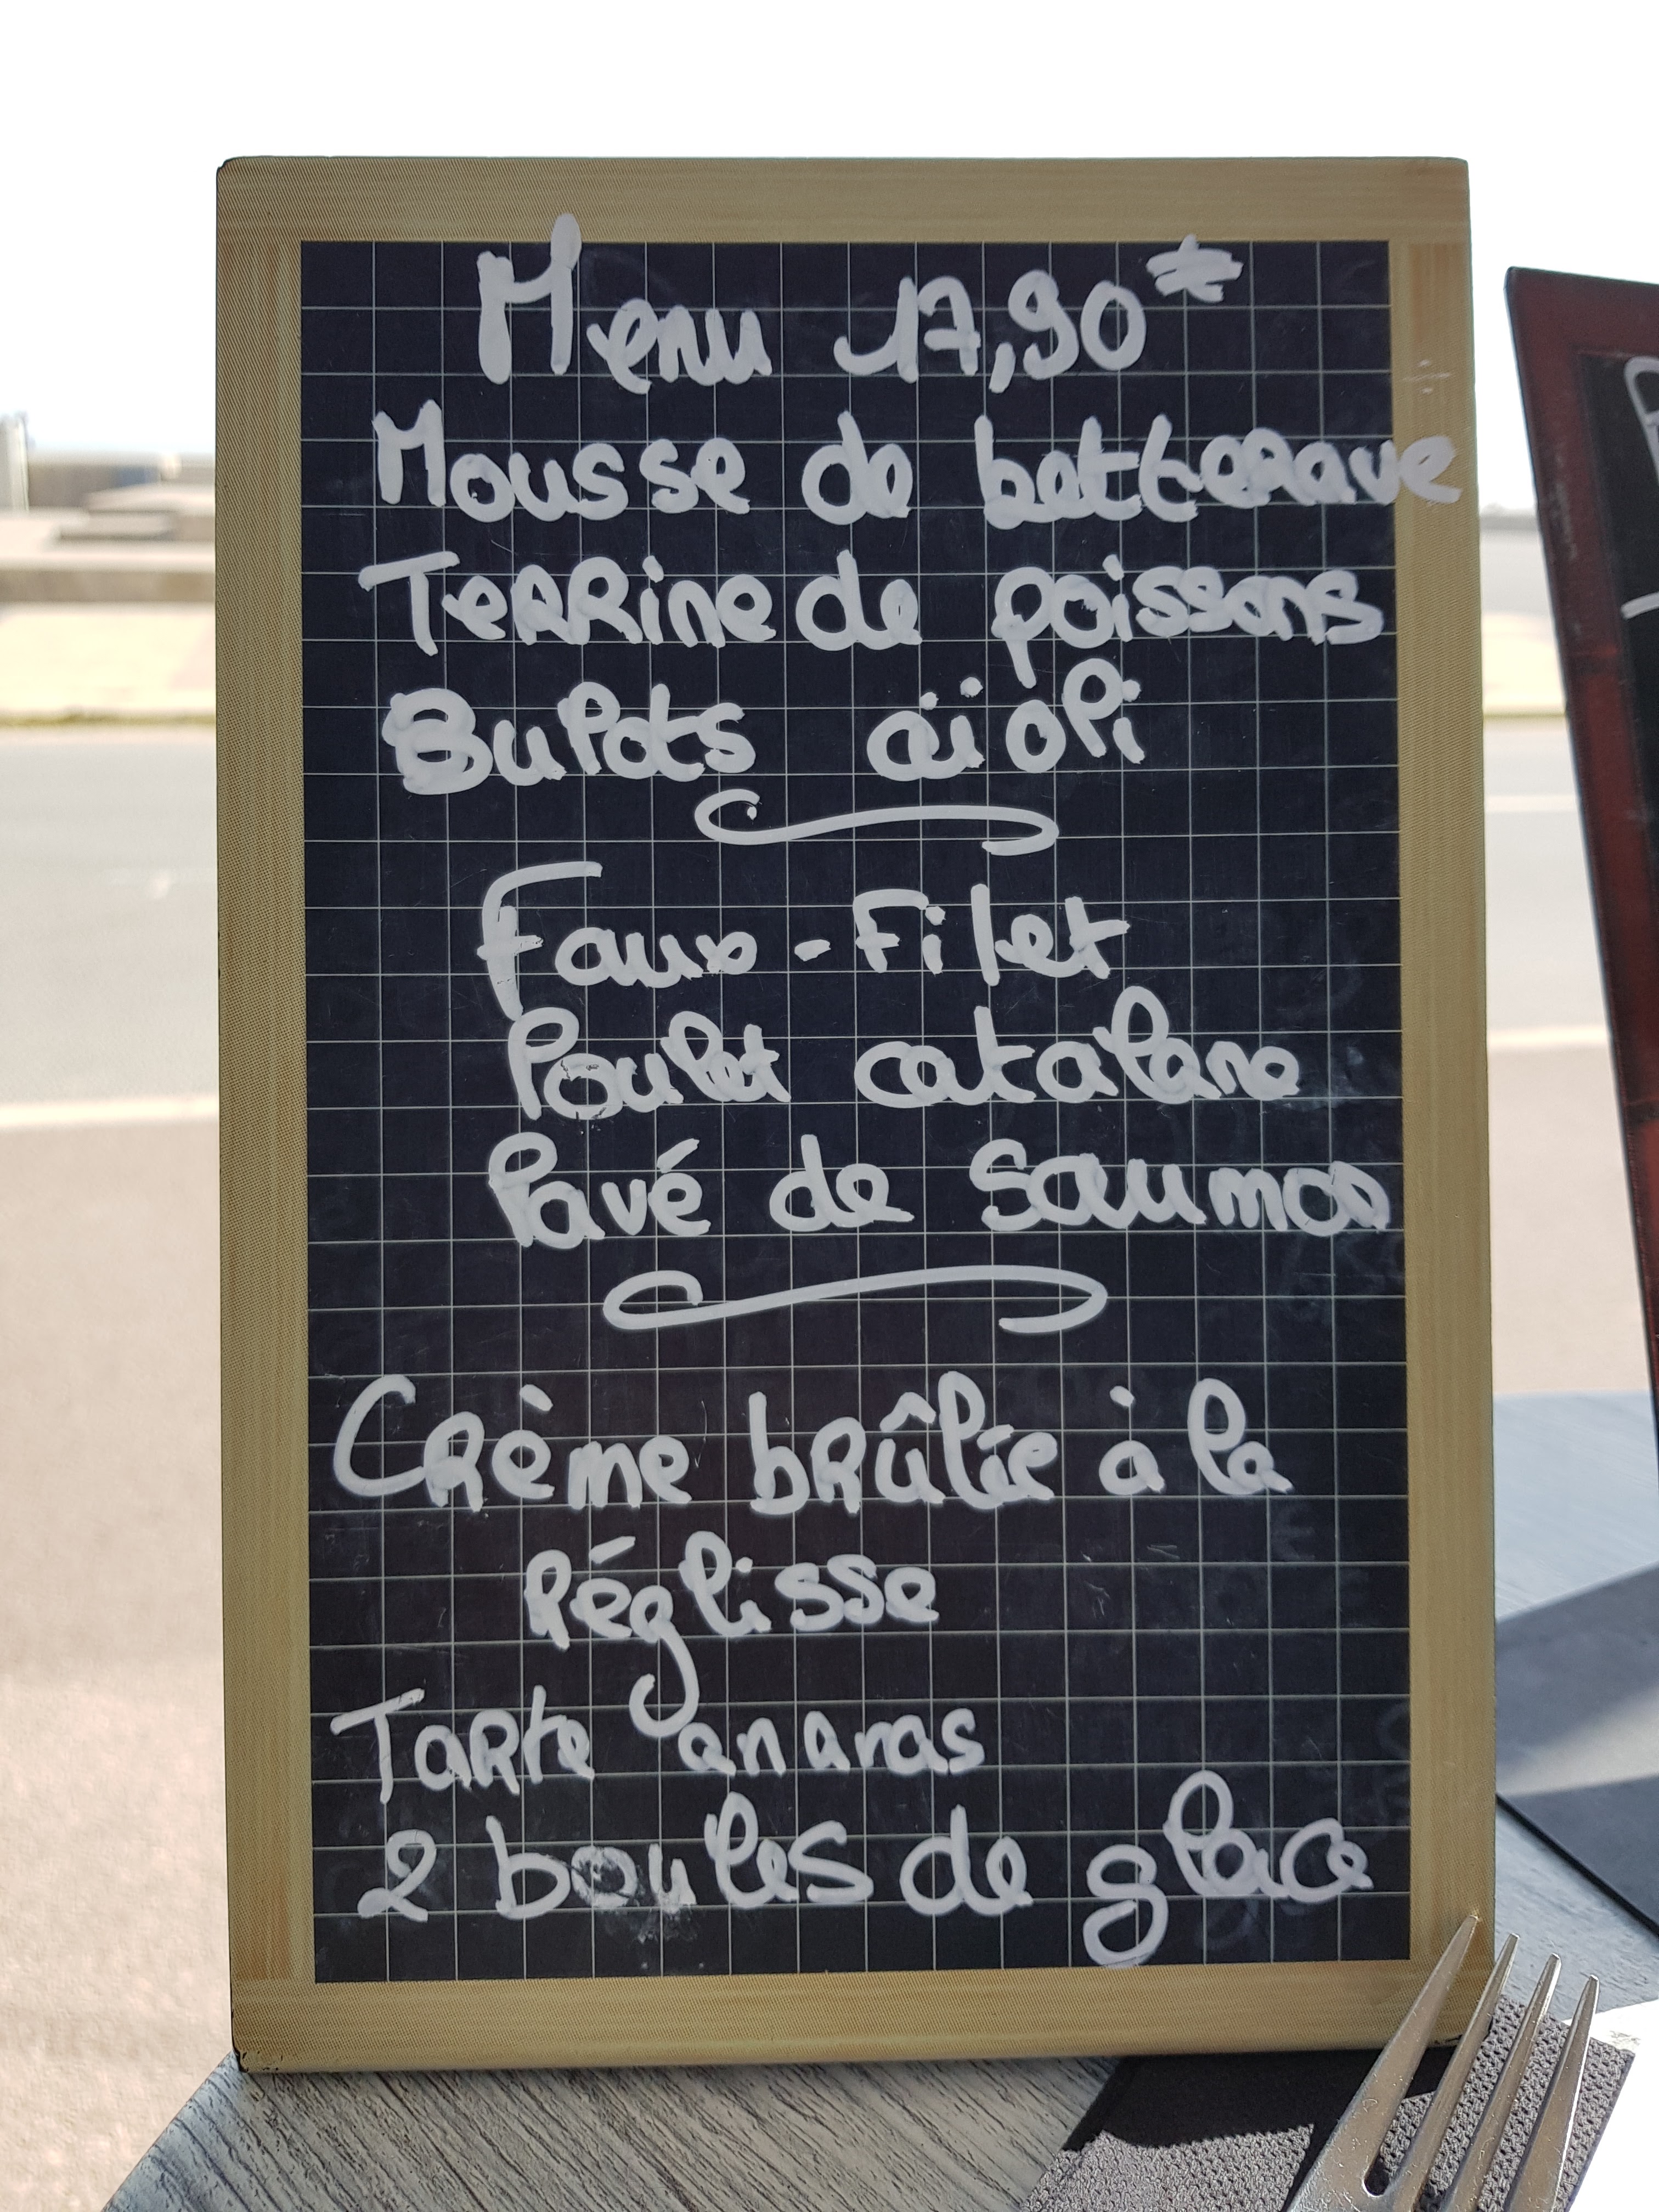 Menu 17,90€
Mousse de betterave
Terrine de poissons
Bulots aïoli
Faux-Filet
Poulet catalane
Pavé de saumon
Crème brûlée à la
réglisse
Tarte ananas
2 boules de glace